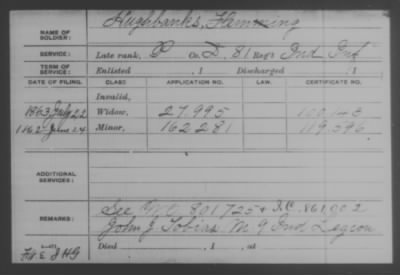 Hughbanks, Flemming
NAME OF SOLDIER:
SERVICE: Late rank, P Co. D, 81 Reg't Ind Inf
TERM OF SERVICE: Enlisted , 1 Discharged , 1
DATE OF FILING. CLASS. APPLICATION NO. LAW. CERTIFICATE NO.
Invalid,
1863 July 22 Widow, 27.995
June 24 Minor, 162281 119,596
ADDITIONAL SERVICES:
REMARKS: See 801725 + I.C. 861,002
John J. Tobias M 9 Ind Legion
Died , 1 , at